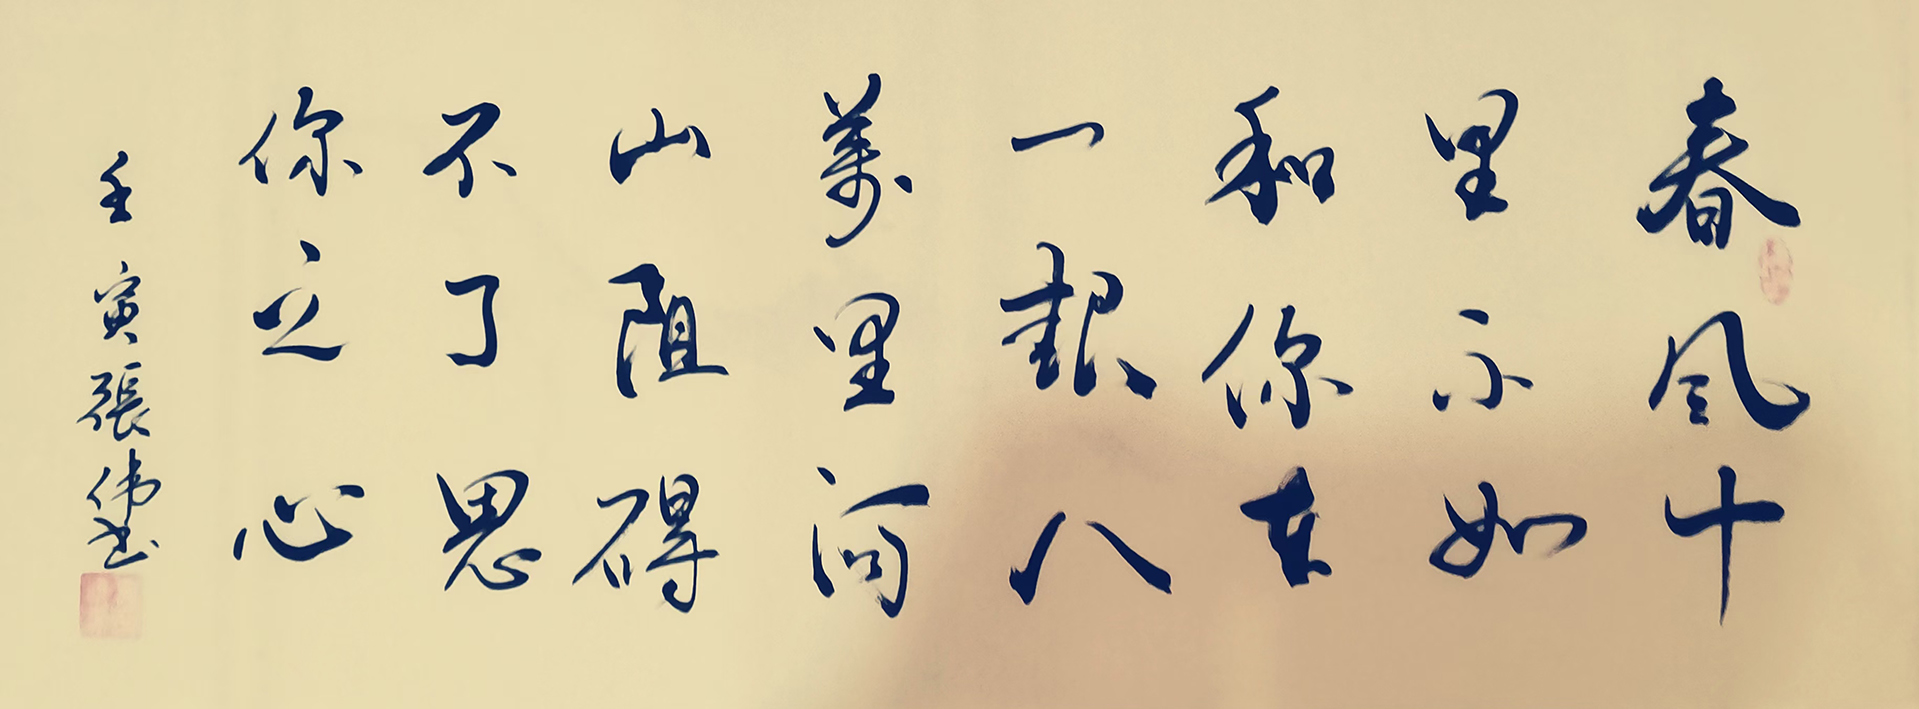 春风十
里不如
和你在
一起八
萬里河
山阻碍
不了思
你之心
壬寅張伟书